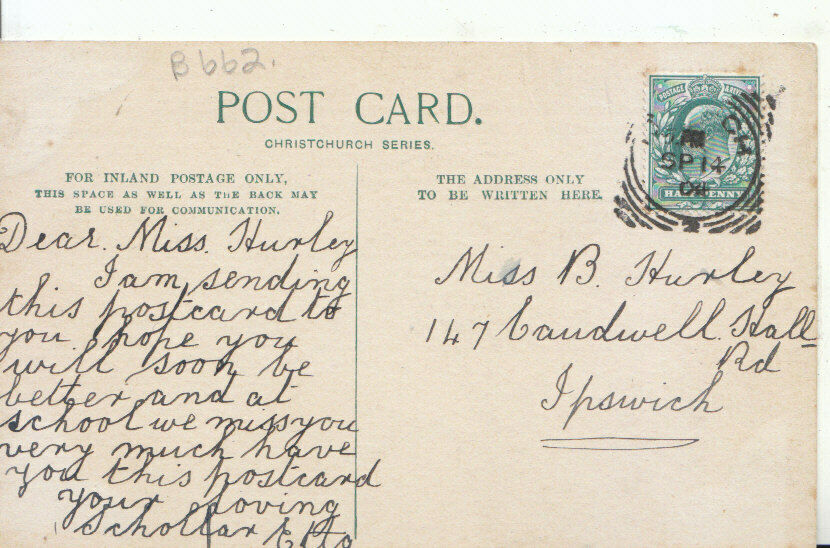 B662.
POST CARD.
CHRISTCHURCH SERIES.
FOR INLAND POSTAGE ONLY,
THIS SPACE AS WELL AS THE BACK MAY
BE USED FOR COMMUNICATION.
THE ADDRESS ONLY
TO BE WRITTEN HERE.
POSTAGE & REVENUE
HALFPENNY
SP 14
04
Dear. Miss. Hurley
I am sending
this postcard to
you hope you
will soon be
better and at
school we miss you
very much have
you this postcard
your loving
Schollar
Miss B. Hurley
147 Cauldwell Hall
Rd
Ipswich